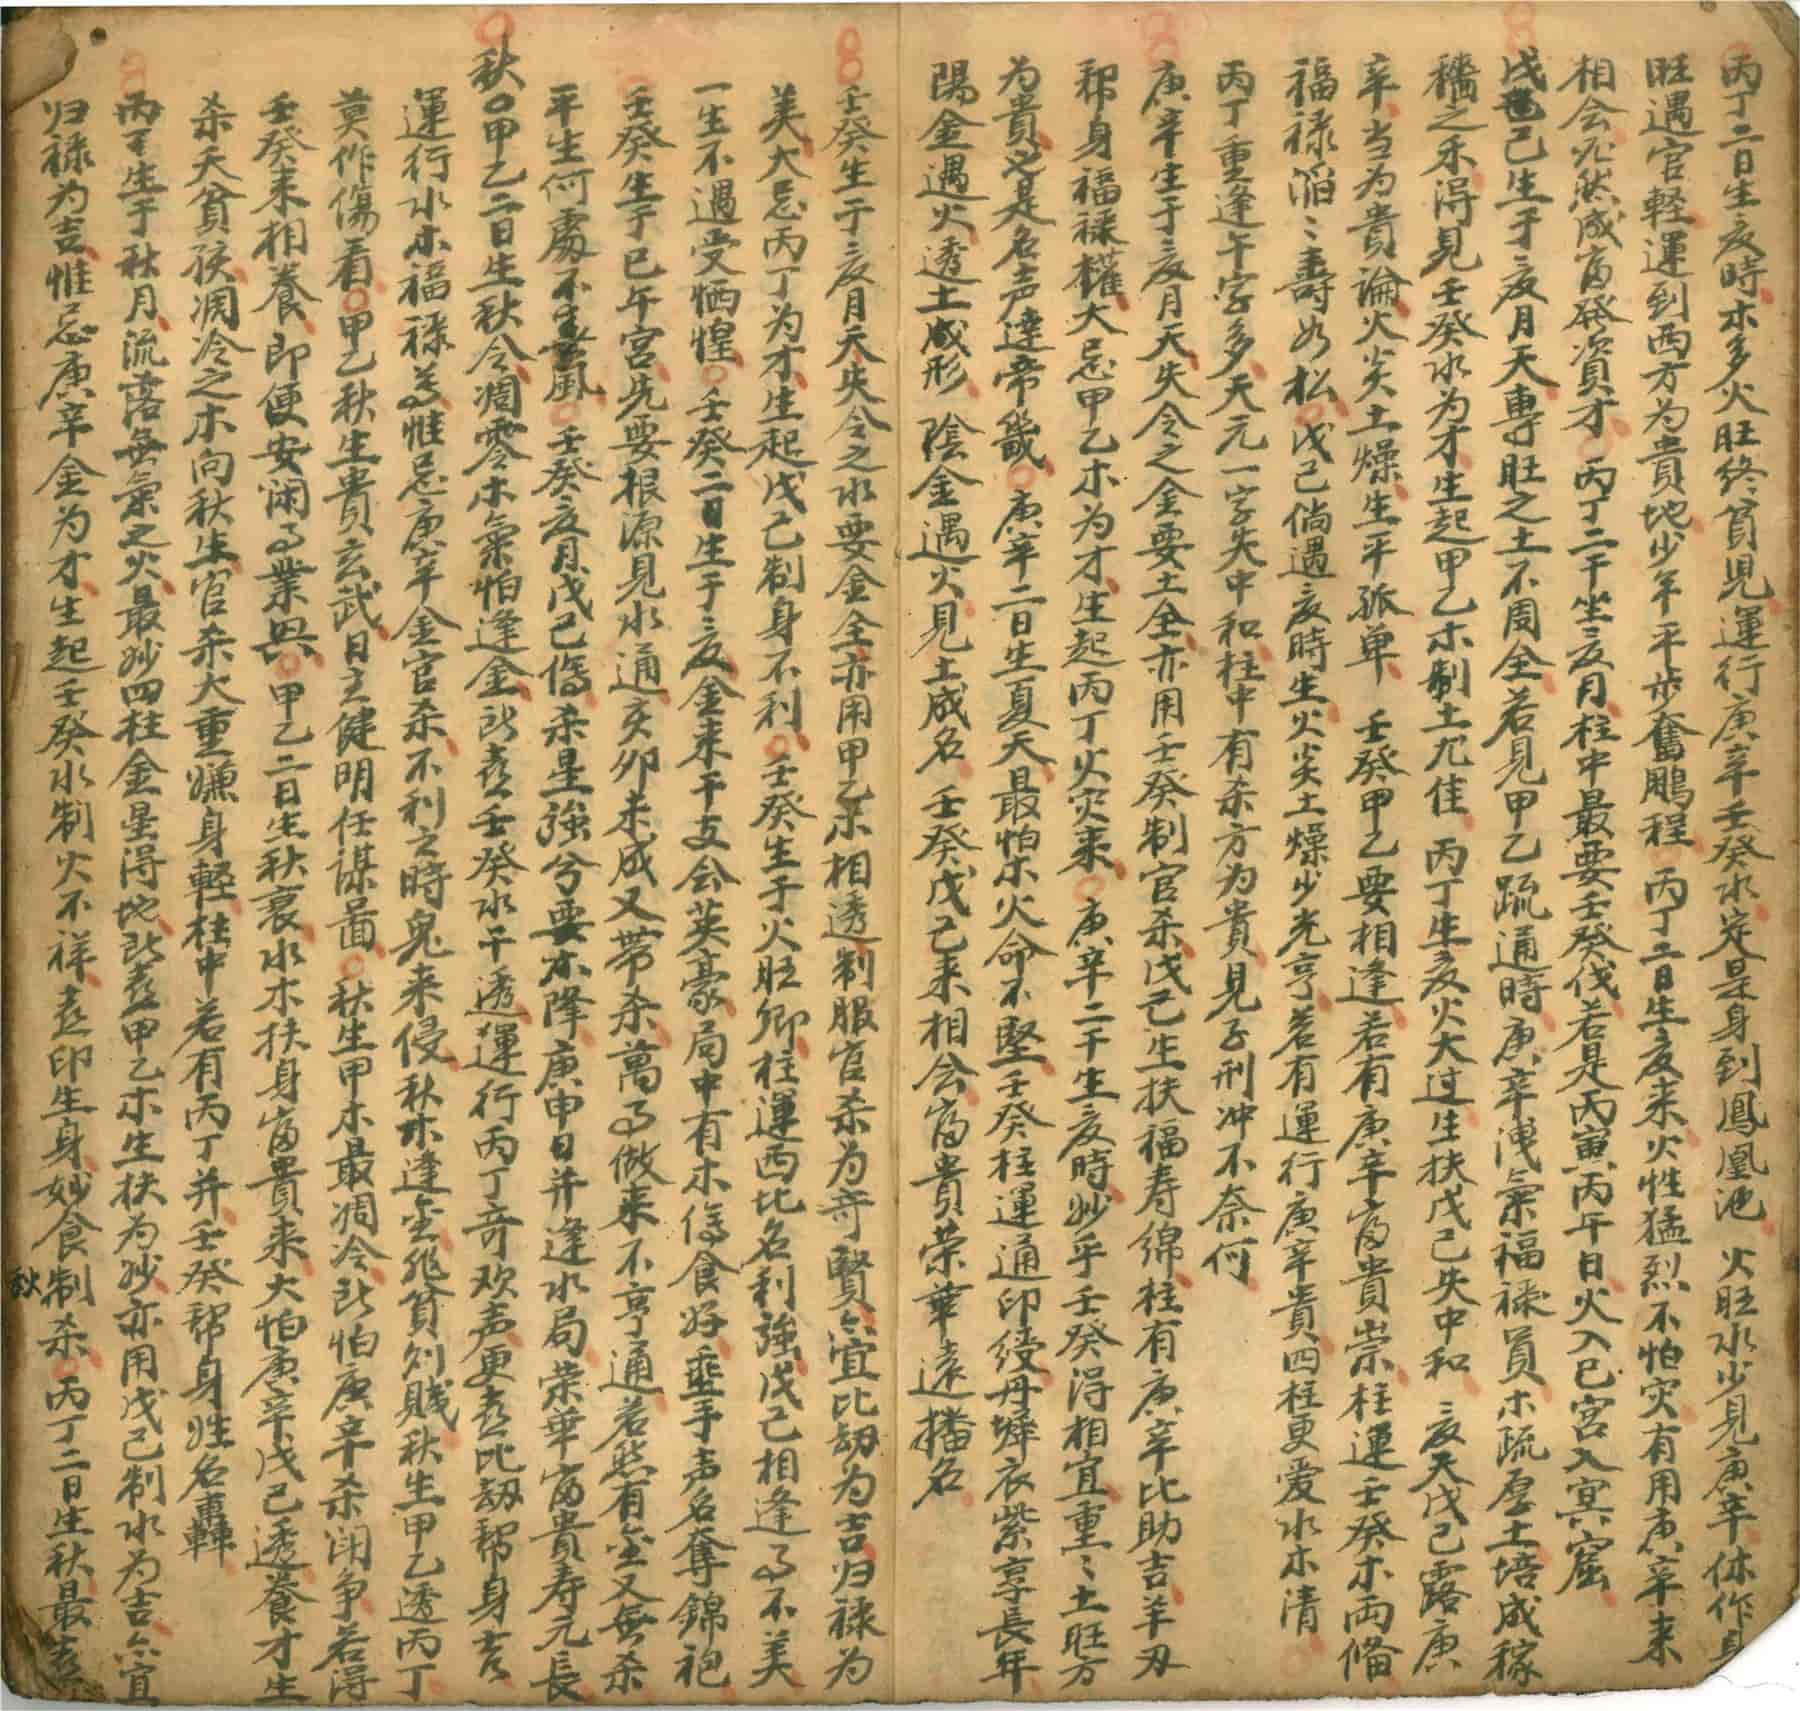 丙丁二日生夏時木多火旺終貧児運行庚辛壬癸水定是身到鳳凰池 火旺水少見庚辛休作身
旺遇官軽運到西方为貴地少年平步奮鵬程 丙丁二日生夏来火性猛烈不怕灾有用庚辛来
相会必然成富發資才 丙丁二干坐夏月柱中最要壬癸伐若是丙寅丙午日火入巳宮入冥窟
戊己生于夏月天專旺之土不周全若見甲乙疏通時庚辛洩氣福禄員木疏厚土培成稼
穡之禾得見壬癸水为才生起甲乙木制土尤佳 丙丁生夏火大过生扶戊己失中和 夏天戊己露庚
辛当为貴論火炎土燥生平孤单 壬癸甲乙要相逢若有庚辛富貴崇柱運壬癸木両俻
福禄滔〻壽如松 戊己倘遇夏時生火炎土燥少光亨若有運行庚辛貴四柱更爱水木清
丙丁重逢午字多天元一字失中和柱中有杀方为貴見子刑冲不奈何
庚辛生于夏月天失令之金要土全亦用壬癸制官杀戊己生扶福寿绵柱有庚辛比助吉羊刃
帮身福禄權大忌甲乙木为才生起丙丁火灾来 庚辛二干生夏時妙乎壬癸得相宜重〻土旺方
为貴必是名声達帝畿 庚辛二日生夏天最怕木火命不堅壬癸柱運通印綬丹墀衣紫享長年
陽金遇火透土成形 陰金遇火見土成名 壬癸戊己来相会富貴荣華遠播名
壬癸生于夏月天失令之水要金全亦用甲乙木相透制服官杀为奇賢亦宜比刼为吉归禄为
美大忌丙丁为才生起戊己制身不利 壬癸生于火旺鄉柱運西北名利強戊己相逢了不美
一生不遇受恓惶 壬癸二日生于夏金来干支会英豪局中有木傷食好垂手声名奪錦袍
壬癸生于巳午宮先要根源見水通亥卯未成又帯杀萬了做来不亨通若然有金又無杀
平生何處不生風 壬癸夏月戊己傷杀星強兮要木降庚申日并逢水局荣華富貴寿元長
秋 甲乙二日生秋令凋零木氣怕逢金此喜壬癸水干透運行丙丁奇欢声更喜比刼帮身吉
運行水木福禄美惟忌庚辛金官杀不利之時鬼来侵秋木逢金非貧則賤秋生甲乙透丙丁
莫作傷看 甲乙秋生貴玄武日主健明任謀啚 秋生甲木最凋冷此怕庚辛杀闲争若得
壬癸来相養即便安闲了業興 甲乙二日生秋裏水木扶身富貴来大怕庚辛戊己透養才生
杀夭貧孩凋冷之木向秋生官杀大重嫌身軽柱中若有丙丁并壬癸帮身姓名轟
丙丁生于秋月流落無氣之火最妙四柱金星得地此喜甲乙木生扶为妙亦用戊己制水为吉亦宜
归禄为吉惟忌庚辛金为才生起壬癸水制火不祥喜印生身妙食制杀 丙丁二日生秋最喜
秋